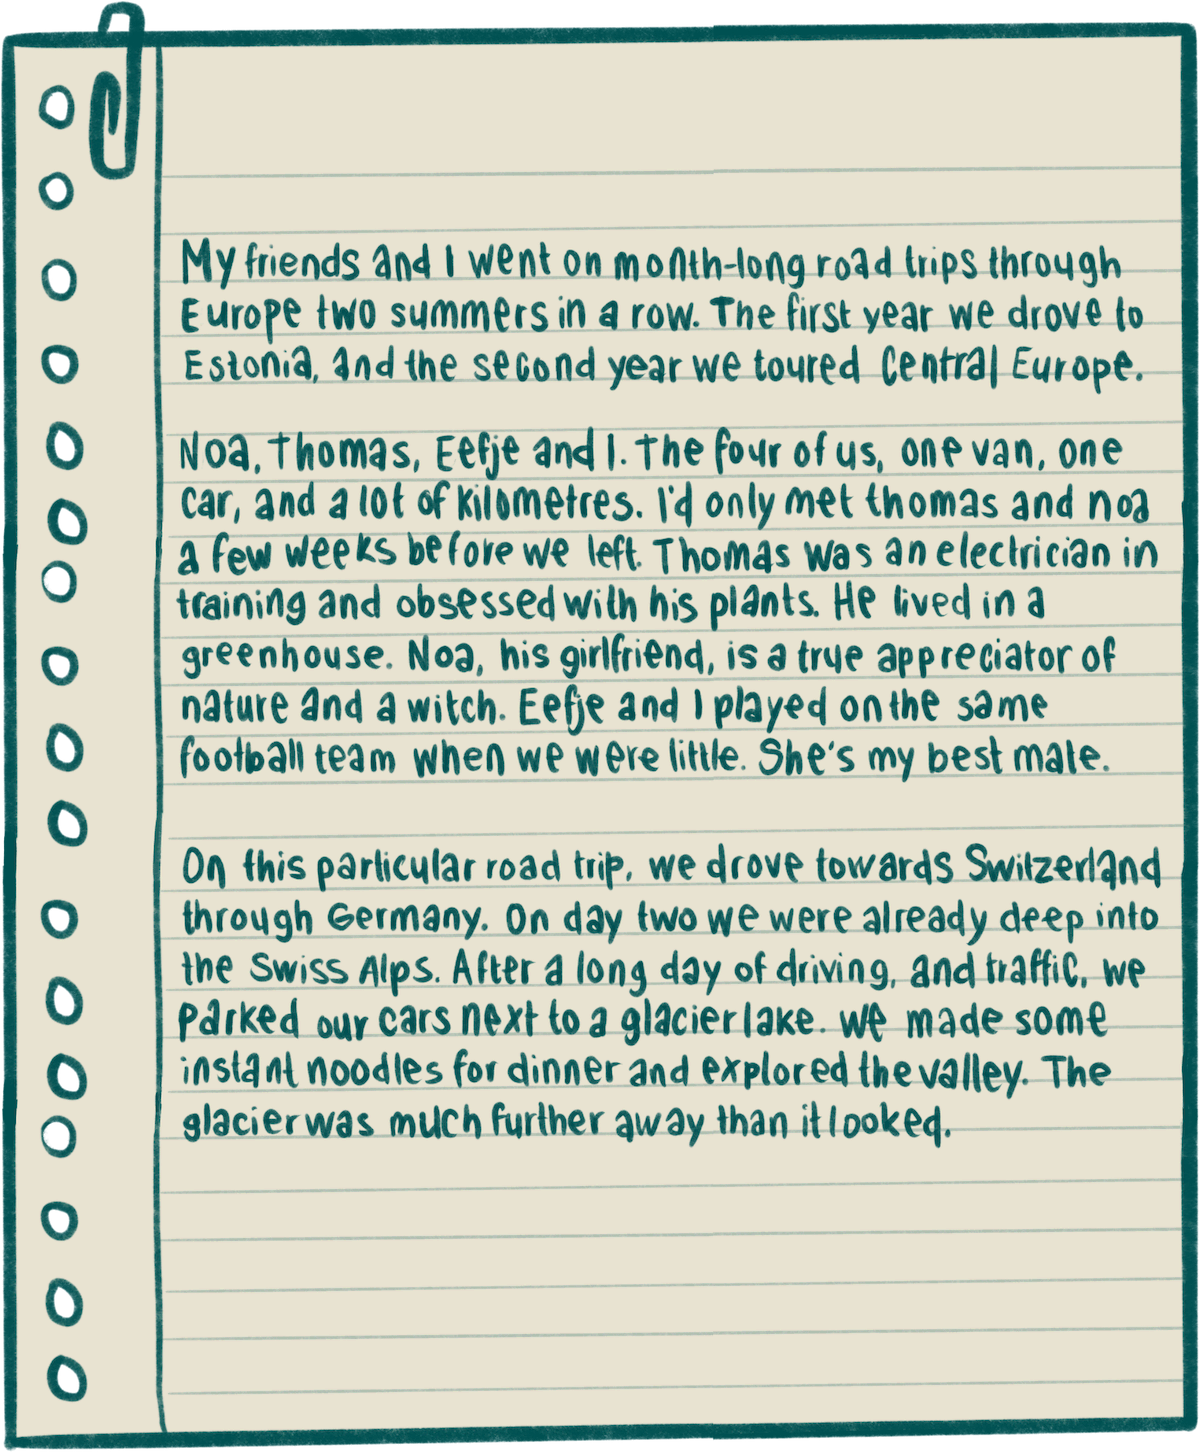 My friends and I went on month-long road trips through
Europe two summers in a row. The first year we drove to
Estonia, and the second year we toured Central Europe.
Noa, Thomas, Eefje and I. The four of us, one van, one
car, and a lot of kilometres. I'd only met thomas and noa
a few weeks before we left. Thomas was an electrician in
training and obsessed with his plants. He lived in a
greenhouse. Noa, his girlfriend, is a true appreciator of
nature and a witch. Eefje and I played on the same
football team when we were little. She's my best mate.
On this particular road trip, we drove towards Switzerland
through Germany. On day two we were already deep into
the Swiss Alps. After a long day of driving, and traffic, we
parked our cars next to a glacier lake. We made some
instant noodles for dinner and explored the valley. The
glacier was much further away than it looked.